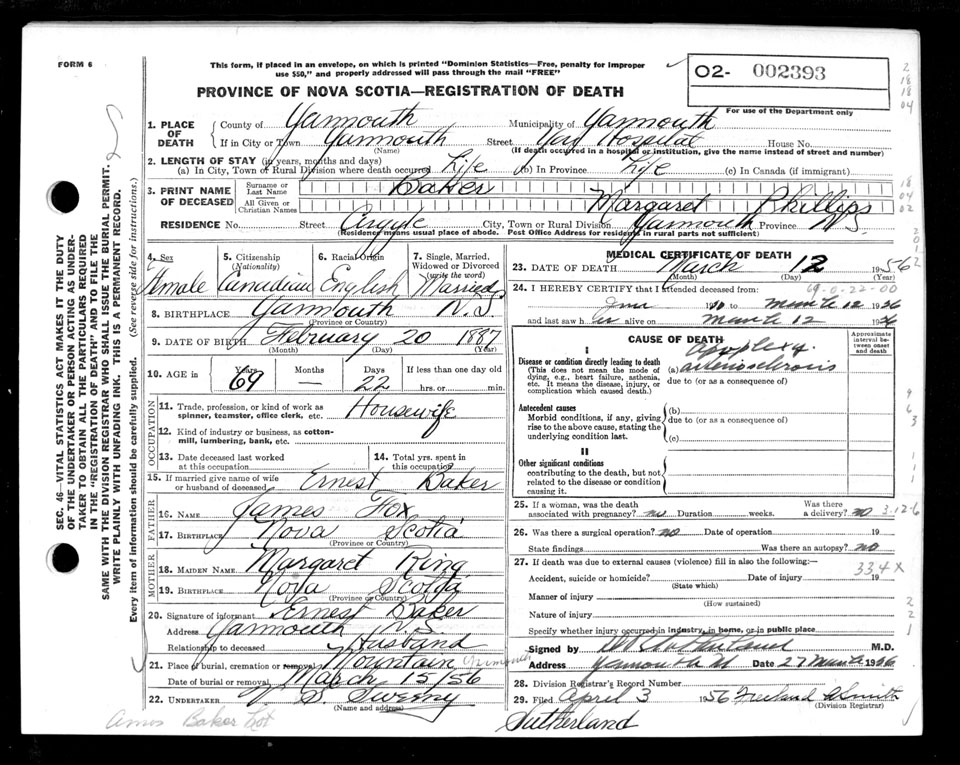 FORM 6
This form, if placed in an envelope, on which is printed "Dominion Statistics—Free, penalty for improper
use $50," and properly addressed will pass through the mail "FREE"
O2- 002393
PROVINCE OF NOVA SCOTIA—REGISTRATION OF DEATH
For use of the Department only
1. PLACE OF DEATH County of Yarmouth Municipality of Yarmouth
If in City or Town Yarmouth Street Yar Hospital House No.
(Name) (If death occurred in a hospital or institution, give the name instead of street and number)
2. LENGTH OF STAY (in years, months and days)
(a) In City, Town or Rural Division where death occurred Life (b) In Province Life (c) In Canada (if immigrant)
3. PRINT NAME OF DECEASED Surname or Last Name Baker
All Given or Christian Names Margaret Phillips
RESIDENCE No. Street Argyle City, Town or Rural Division Yarmouth Province N.S.
(Residence means usual place of abode. Post Office Address for residents in rural parts not sufficient)
4. Sex
Female
5. Citizenship (Nationality)
Canadian
6. Racial Origin
English
7. Single, Married, Widowed or Divorced (write the word)
Married
8. BIRTHPLACE Yarmouth N.S.
(Province or Country)
9. DATE OF BIRTH February 20 1887
(Month) (Day) (Year)
10. AGE in Years 69 Months — Days 22 If less than one day old
hrs. or min.
OCCUPATION
11. Trade, profession, or kind of work as spinner, teamster, office clerk, etc. Housewife
12. Kind of industry or business, as cotton-mill, lumbering, bank, etc.
13. Date deceased last worked at this occupation
14. Total yrs. spent in this occupation
15. If married give name of wife or husband of deceased Ernest Baker
FATHER
16. NAME James Fox
17. BIRTHPLACE Nova Scotia
(Province or Country)
MOTHER
18. MAIDEN NAME Margaret Ring
19. BIRTHPLACE Nova Scotia
(Province or Country)
20. Signature of informant Ernest Baker
Address Yarmouth N.S
Relationship to deceased Husband
21. Place of burial, cremation or removal Mountain
Date of burial or removal March 15/56
22. UNDERTAKER S. Sweeny
(Name and address)
Amos Baker Lot
MEDICAL CERTIFICATE OF DEATH
23. DATE OF DEATH March 12 1956
(Month) (Day) (Year)
69-0-22-00
24. I HEREBY CERTIFY that I attended deceased from:
to March 12 1956
and last saw her alive on March 12 1956
CAUSE OF DEATH
Approximate interval between onset and death
I
Disease or condition directly leading to death
(This does not mean the mode of dying, e.g., heart failure, asthenia, etc. It means the disease, injury, or complication which caused death.)
(a) Apoplexy.
arteriosclerosis
due to (or as a consequence of)
Antecedent causes
Morbid conditions, if any, giving rise to the above cause, stating the underlying condition last.
(b)
due to (or as a consequence of)
(c)
II
Other significant conditions
contributing to the death, but not related to the disease or condition causing it.
25. If a woman, was the death associated with pregnancy? no Duration weeks. Was there a delivery? no
3-12-6
26. Was there a surgical operation? no Date of operation 19
State findings Was there an autopsy? no
27. If death was due to external causes (violence) fill in also the following:—
334X
Accident, suicide or homicide? Date of injury 19
(State which)
Manner of injury
(How sustained)
Nature of injury
Specify whether injury occurred in industry, in home, or in public place
Signed by M.D.
Address Yarmouth Date 27 March 1956
28. Division Registrar's Record Number
29. Filed April 3 1956 Freeland Smith
(Division Registrar)
Sutherland
SEC. 46—VITAL STATISTICS ACT MAKES IT THE DUTY
OF THE UNDERTAKER OR PERSON ACTING AS UNDER-
TAKER TO OBTAIN ALL THE PARTICULARS REQUIRED
IN THE "REGISTRATION OF DEATH" AND TO FILE THE
SAME WITH THE DIVISION REGISTRAR WHO SHALL ISSUE THE BURIAL PERMIT.
WRITE PLAINLY WITH UNFADING INK. THIS IS A PERMANENT RECORD.
Every item of information should be carefully supplied. (See reverse side for instructions.)